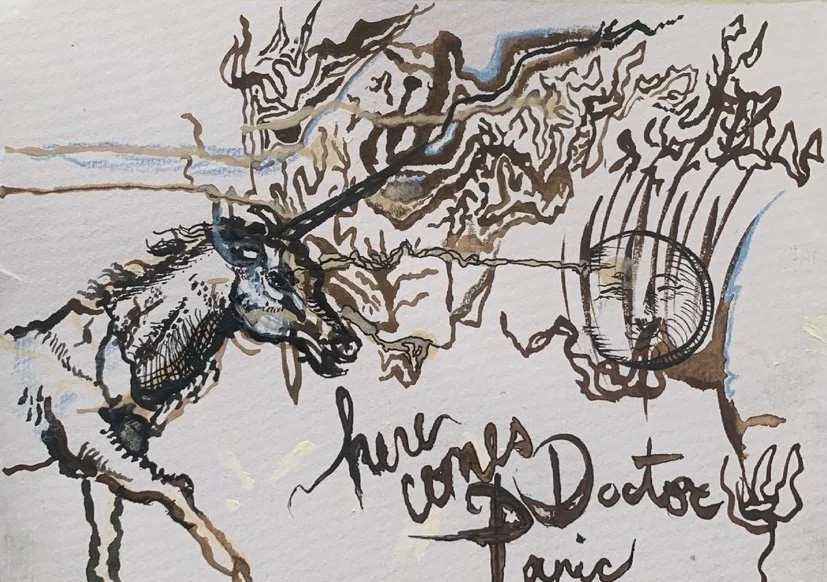 here
comes
Doctor
Panic